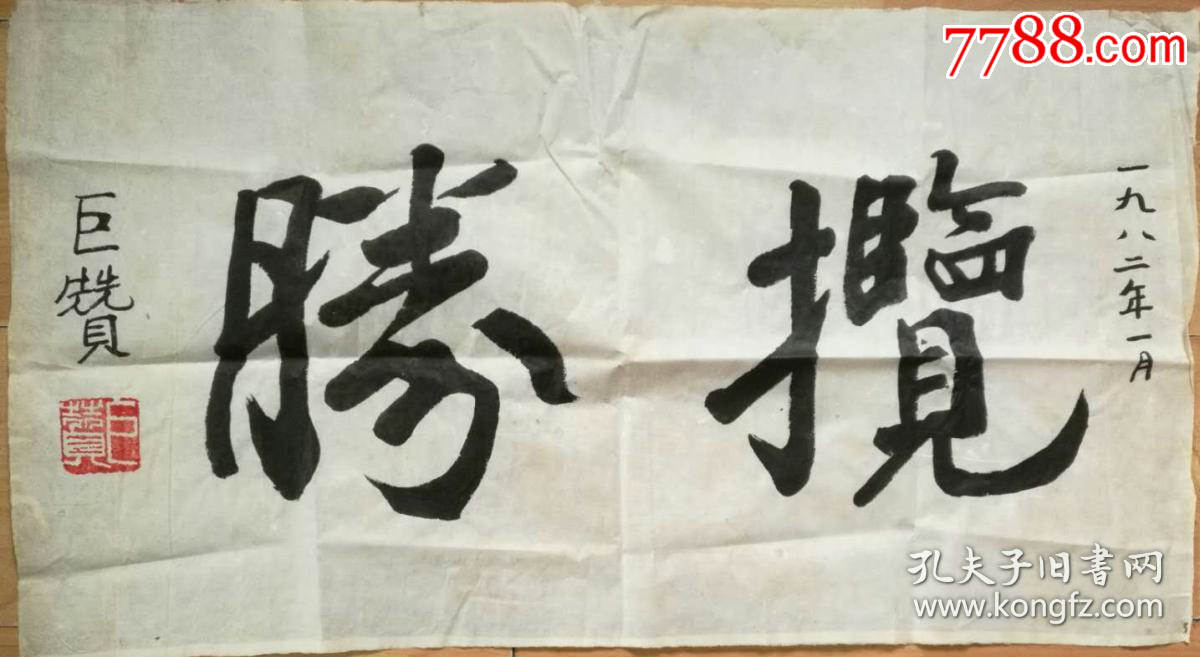 一九八二年一月
攬勝
巨赞
巨赞
7788.com
孔夫子旧书网
www.kongfz.com